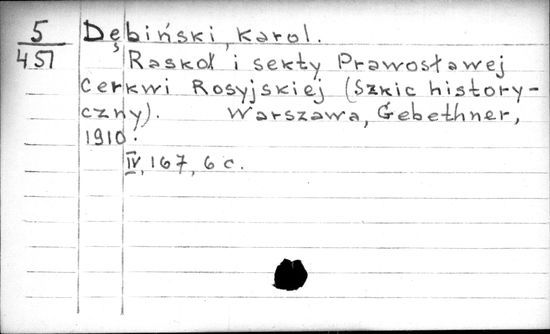 5
451
Dębiński, Karol.
Raskoł i sekty Prawosławej
Cerkwi Rosyjskiej (Szkic history-
czny). Warszawa, Gebethner,
1910.
IV, 167, 6 c.